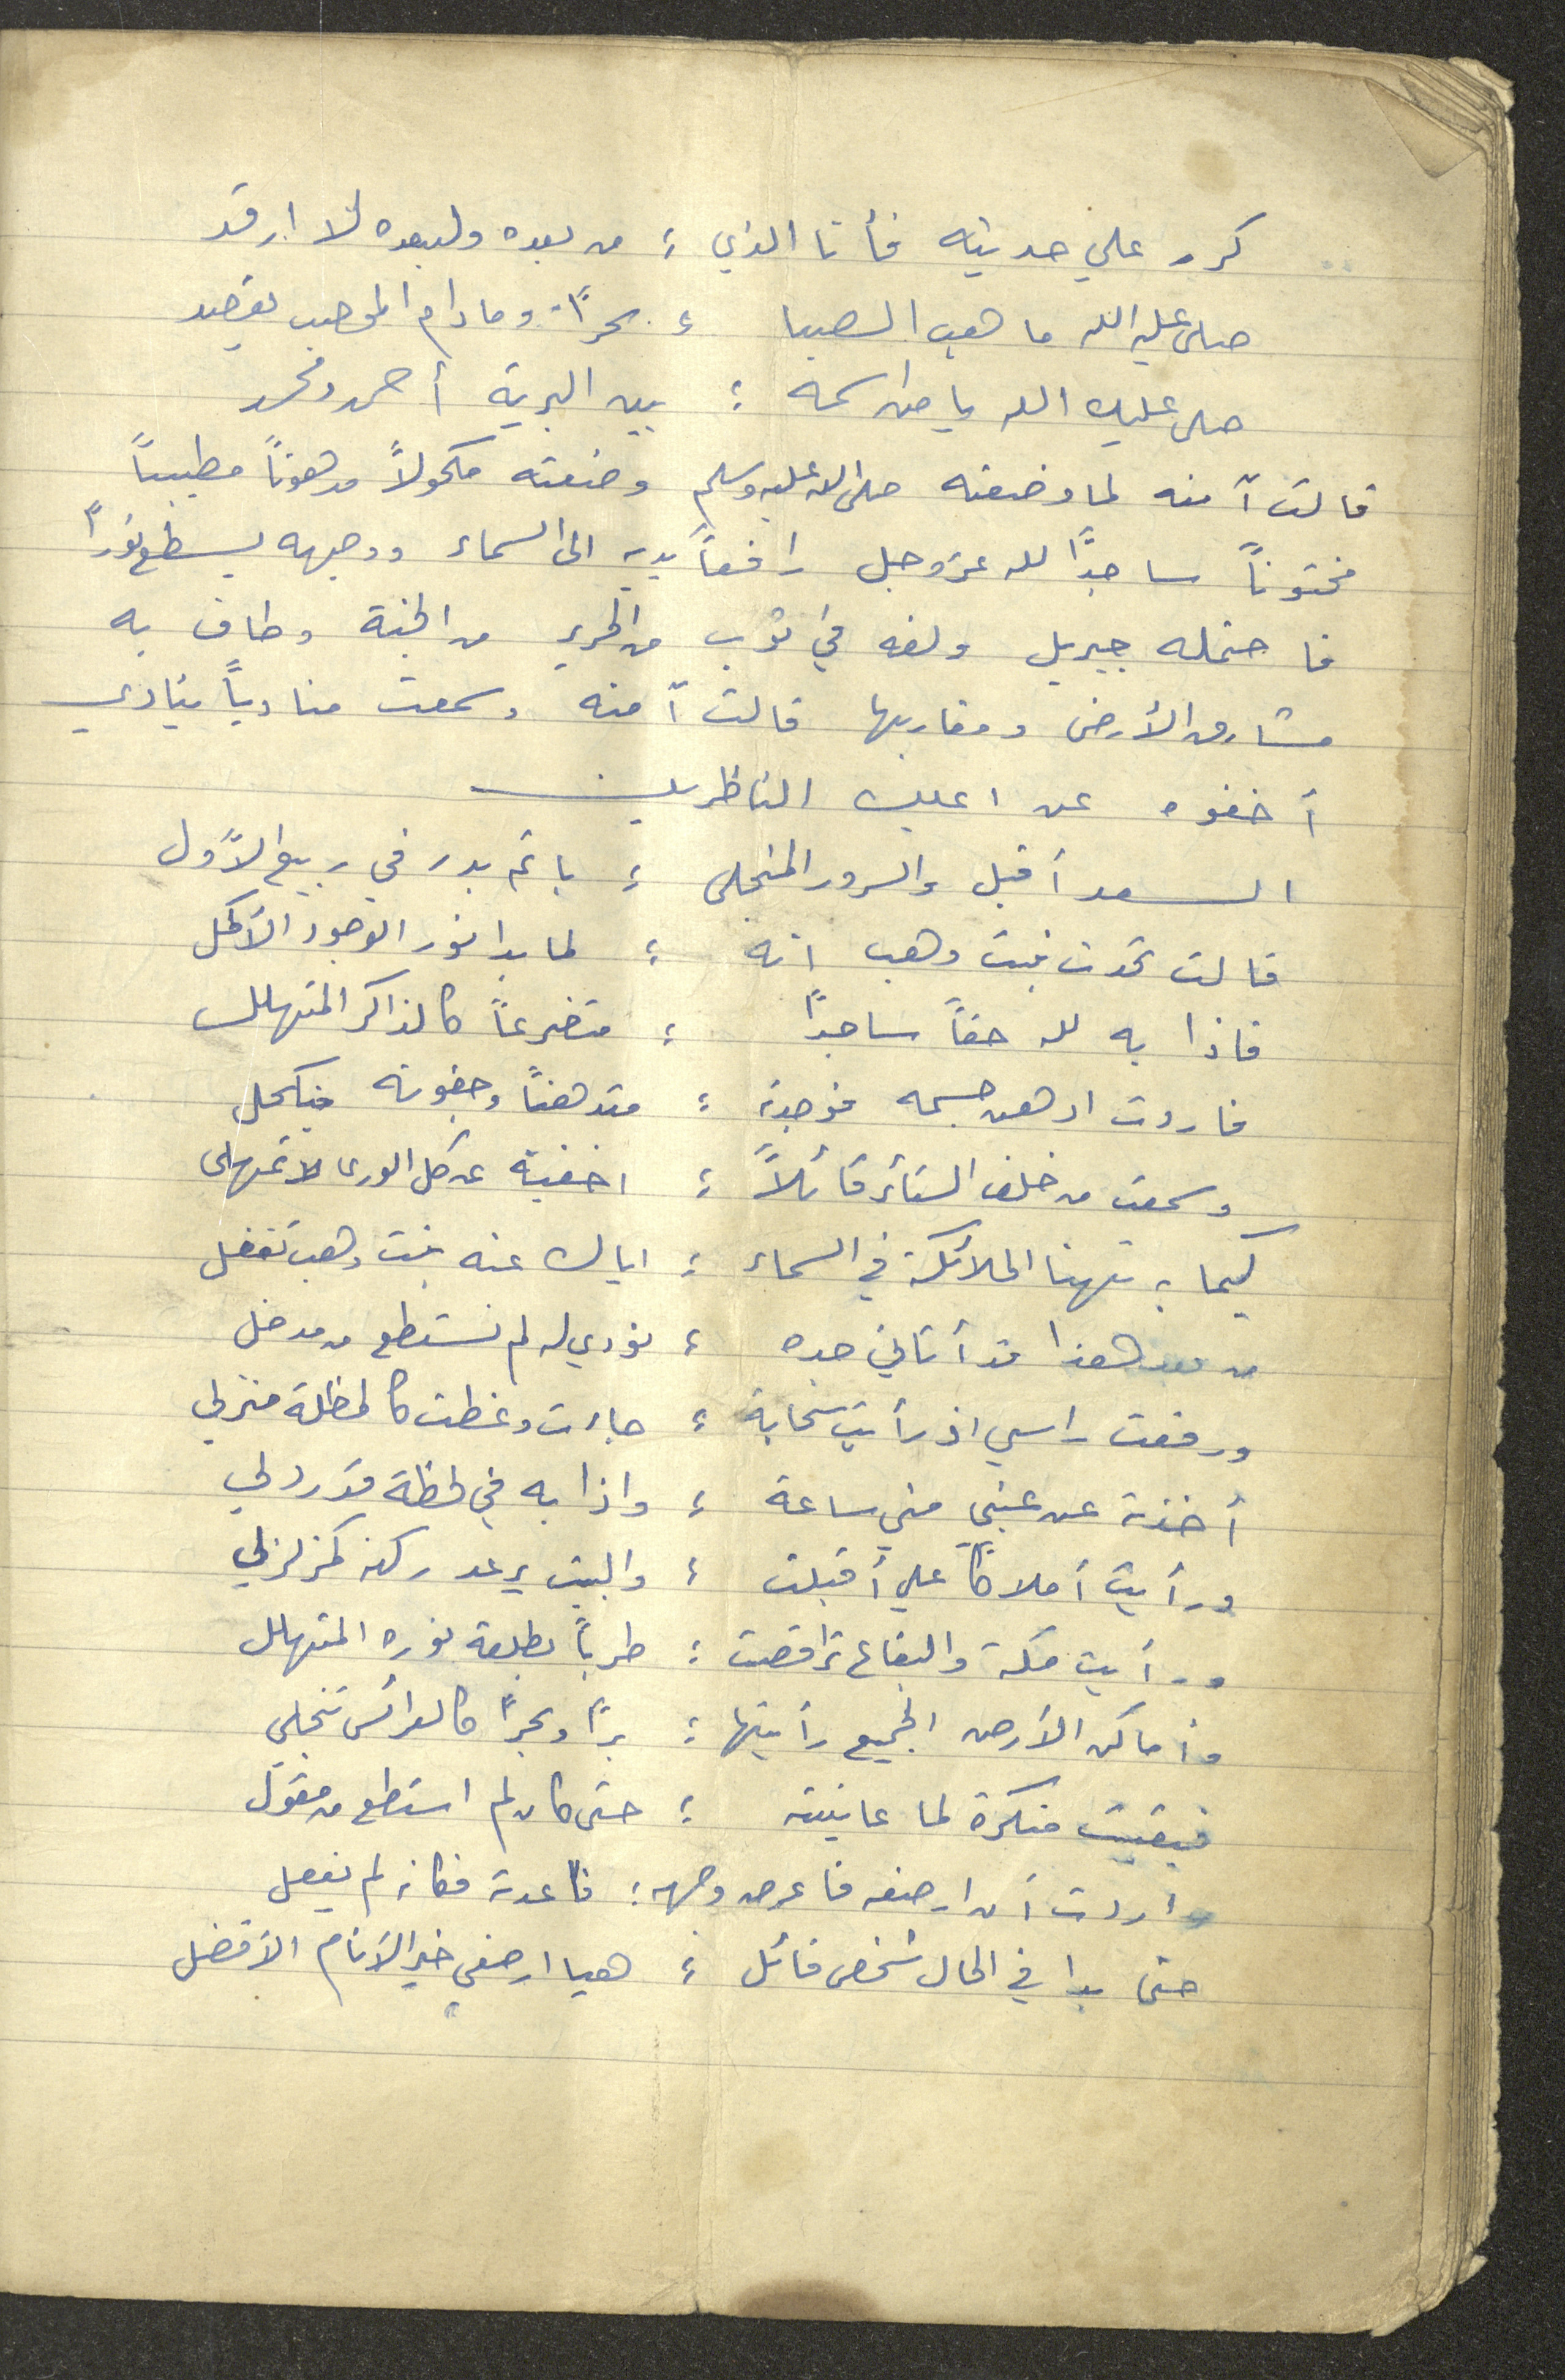 كرر علي حديثه فأنا الذي ؛ من بعده ولبعده لا ارقد
صلى عليه الله ما هب الصبا ؛ سحراً وما دام الموحب يقصد
صلى عليك الله يا من اسمه ؛ بين البرية أحمد ومحمد
قالت آمنه لما وضعته صلى الله عليه وسلم وضعته مكحولاً مدهوناً مطيباً
مختوناً ساجداً لله عز وجل رافعاً يديه الى السماء ووجهه يسطع نوراً
فاحتمله جبريل ولفه في ثوب من الحرير من الجنة وطاف به
مشارق الأرض ومغاربها قالت آمنه وسمعت منادياً ينادي
أخفوه عن اعين الناظرين
السعد أقبل والسرور المنجلى ؛ يا تم بدر في ربيع الأول
قالت تحدث بنت وهب انه ؛ لما بدا نور الوجود الأكمل
فاذا به لله حقاً ساجداً ؛ متضرعاً كالذاكر المتهلل
فاردت ادهن جسمه فوجدته ؛ متدهناً وجفونه بتكحل
وسمعت من خلف الستأر قائلاً ؛ اخفيته عن كل الورى لا تمهلى
كيما به تهنا الملائكة في السماء ؛ اياك عنه بنت وهب تغفل
من بعد هذا قد أتاني جده ؛ نودي له لم نستطع من مدخل
ورفعت راسي اذ رأيت سحابة ؛ جاءت وغطت كالمظلة منزلي
أخذته عن عيني مني ساعة ؛ واذا به في لحظة قد رد لي
ورأيت أملاكاً علي أقبلت ؛ والبيت يرعد ركنه كمزلزلي
ورأيت مكة والبقاع تراقصت ؛ طرباً بطلعة نوره المتهلل
وأماكن الأرض الجميع رأيتها ؛ براً وبحراً كالعرائس تنجلى
فبقيت منكرة لما عاينته ؛ حتى كان لم استطع من مقول
واردت أن ارضعه فاعرض وجهه ؛ فأعدته فكانه لم يفعل
حتى بدا في الحال شخص قائل ؛ هيا ارضعي خير الأنام الأفضل